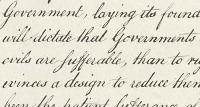 Government, laying its found
will dictate that Governments
evils are sufferable, than to ri
evinces a design to reduce them
been the patient sufferance o